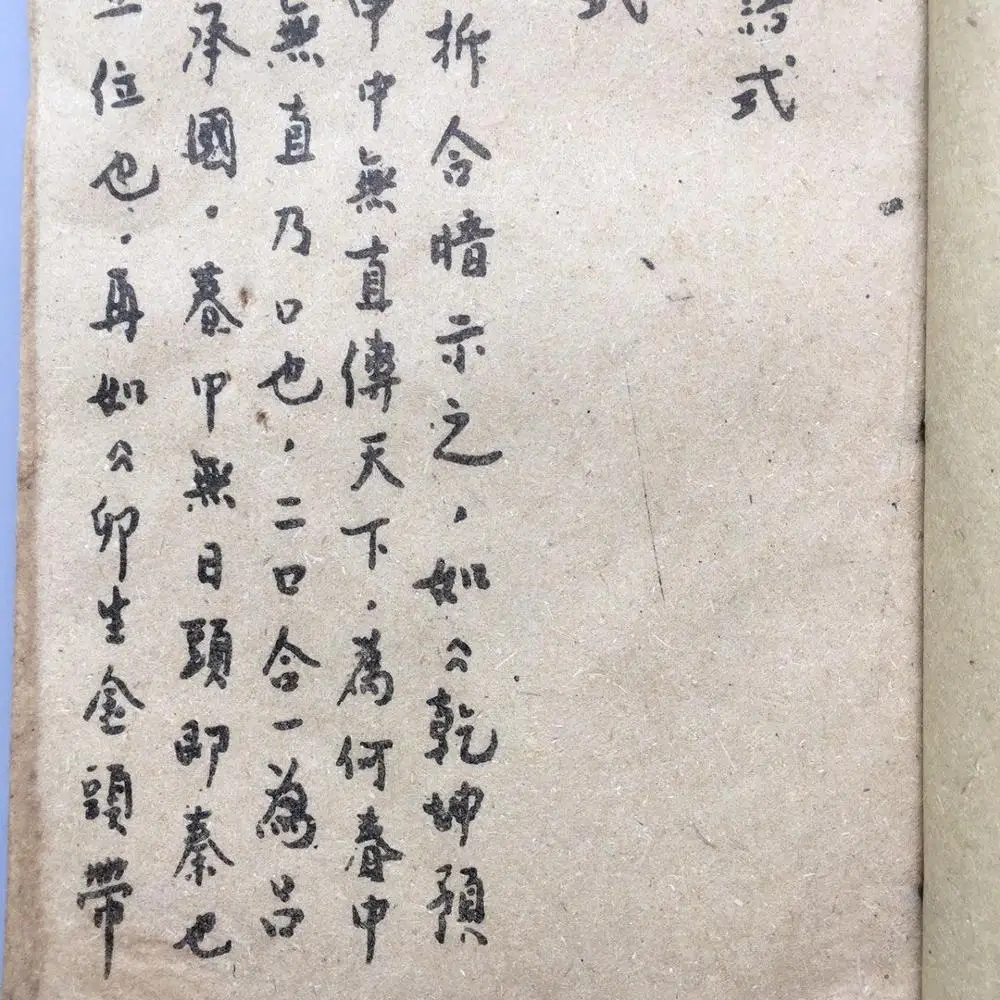 式
式
拆合暗示之，如々乾坤預
中無直傳天下．為何春中
無直乃口也，二口合一為呂
承國．春中無日頭即秦也
位也．再如々卯生金頭帶